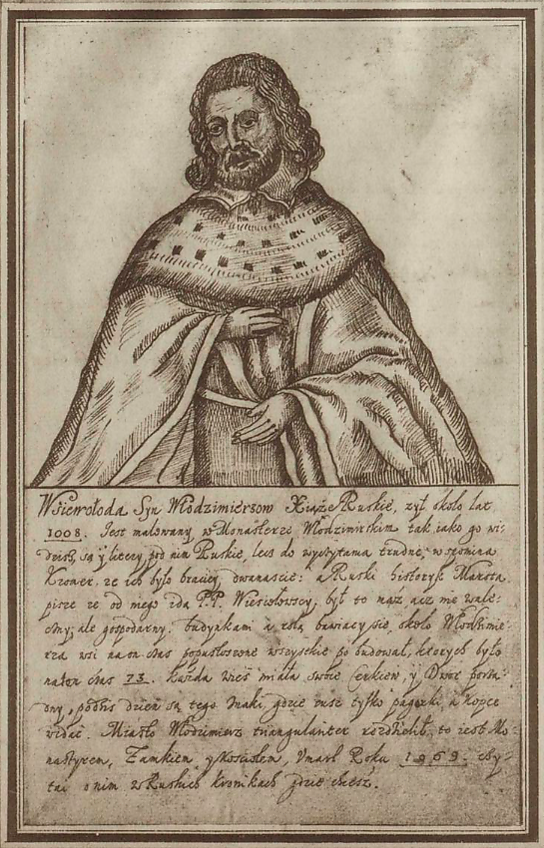 Wsiewołoda Syn Włodzimierzow Xiąże Ruskie, zył około lat
1008. Jest malowany w Monasterze Włodzimirskim tak iako go wi-
dzisz, są y litery pod nim Ruskie, lecz do wyczytania trudne, wspomina
Kromer, ze ich było braciey dwanascie: a Ruski historyk
pisze ze od niego idą P.P. Wiesiołowscy, był to mąż nie wale-
czny, ale gospodarny, budynkami a rolą bawiący się, około Włodzimie-
rza wsi na on czas popustoszone wszystkie po budował, ktorych było
na ten czas 73. kazda wieś miała swoię Cerkiew, y Dwor
y podziś dzień są tego znaki, gdzie tylko pagorki, a kopce
widać. Miasto Włodzimierz triangulariter rozdzielił, to iest Mo-
nastyrem, Zamkiem, y Kosciołem, Umarł Roku czy-
tai o nim w Ruskich kronikach gdzie chcesz.